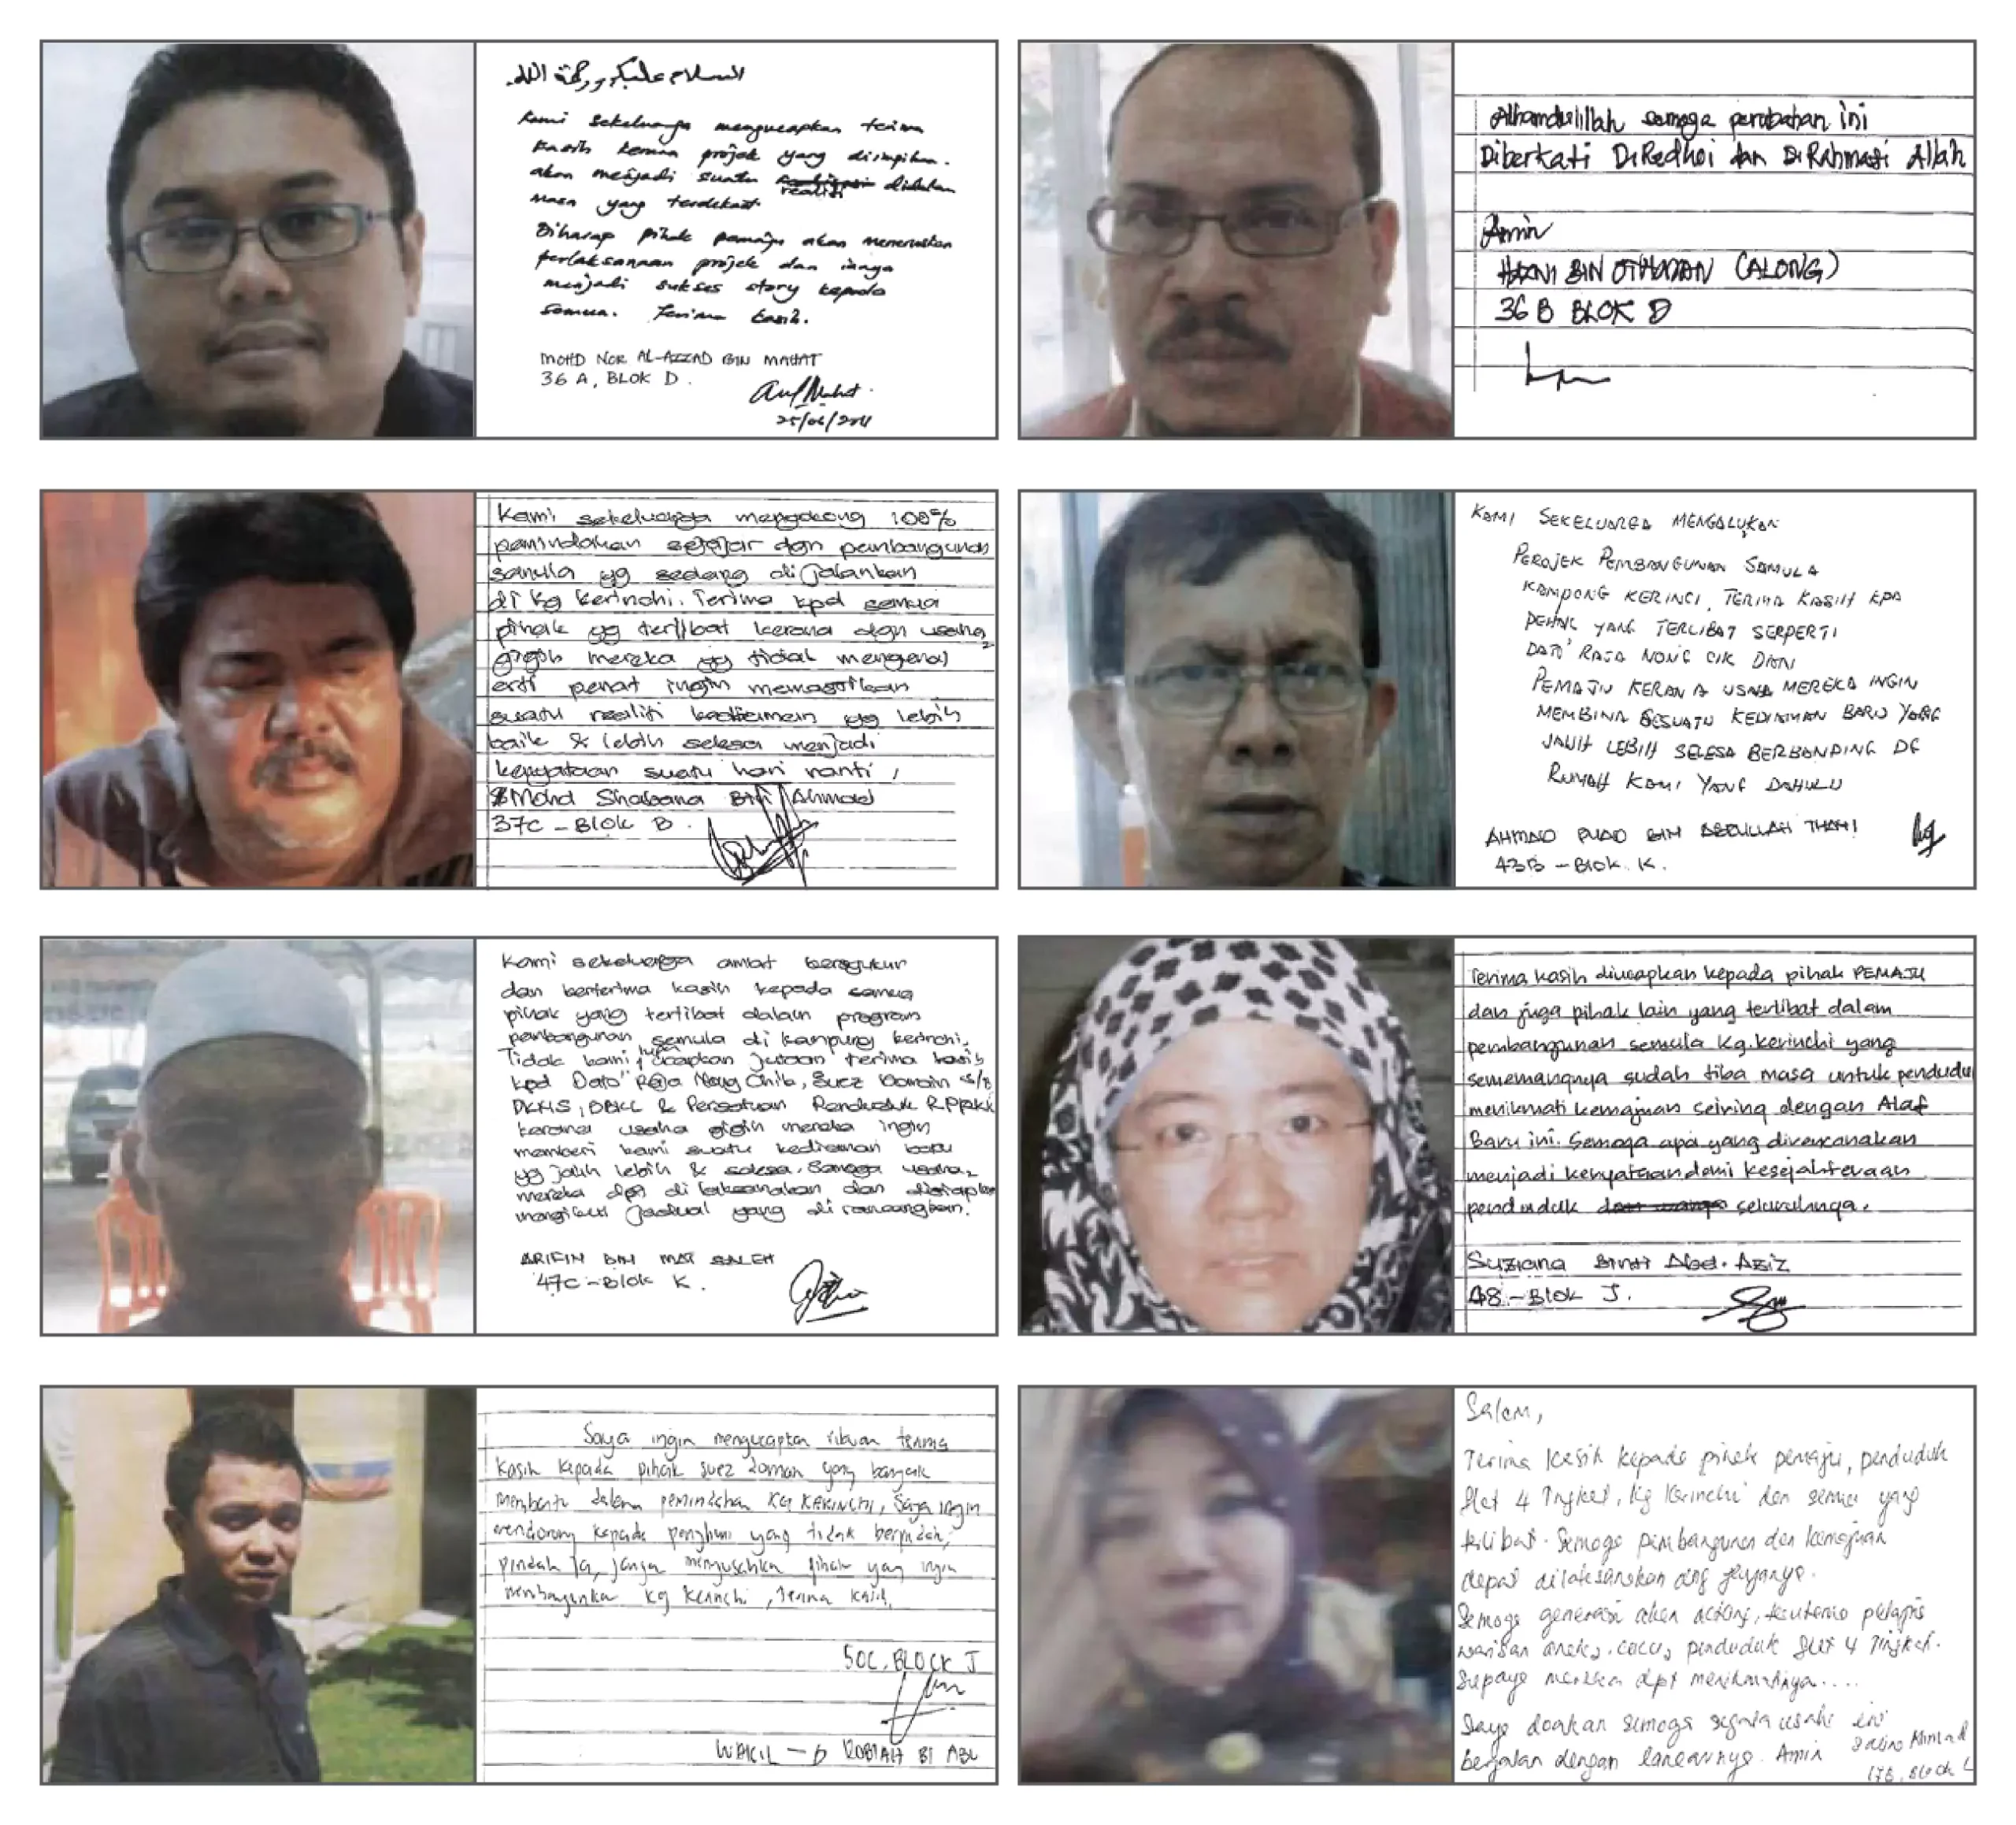 السلام عليكم ورحمة الله.
Kami sekeluarga mengucapkan terima
kasih kerana projek yang diimpikan
akan menjadi suatu realiti didalam
masa yang terdekat.
Diharap pihak pemaju akan meneruskan
perlaksanaan projek dan ianya
menjadi sukses story kepada
semua. Terima kasih.
MOHD NOR AL-AZZAD BIN MAHAT
36 A, BLOK D.
Alhamdulillah semoga perubahan ini
Diberkati DiRedhoi dan DiRahmati Allah
Amin
BIN OTHMAN (ALONG)
36 B BLOK D
Kami sekeluarga mengokong 100%
pemindahan sejajar dgn pembangunan
samula yg sedang dijalankan
di kg kerinchi. Terima kpd semua
pihak yg terlibat kerana dgn usaha2
gigih mereka yg tidak mengenal
erti penat ingin memastikan
suatu realiti kediaman yg lebih
baik & lebih selesa menjadi
kenyataan suatu hari nanti,
Mohd Shabana Bin Ahmad
37C - Blok B.
KAMI SEKELUARGA MENGALUKAN
PEROJEK PEMBANGUNAN SAMULA
KAMPONG KERINCI, TERIMA KASIH KPA
PEHAK YANG TERLIBAT SERPERTI
DATO' RAJA NONG CIK DAN
PEMAJU KERANA USHA MEREKA INGIN
MEMBINA SESUATU KEDIAMAN BARU YANG
JAUH LEBIH SELESA BERBANDING DG
RUMAH KAMI YANG DAHULU
AHMAD PUAD BIN ABDULLAH THANI
43B - BLOK. K.
Kami sekeluarga amat bersyukur
dan berterima kasih kepada semua
pihak yang terlibat dalam program
pembangunan semula di kampung kerinchi.
Tidak kami lupa ucapkan jutaan terima kasih
kpd Dato' Raja Nong Chik, Suez Domain S/B
DKHS, DBKL & Persatuan Penduduk RPPKK
kerana usaha gigih mereka ingin
memberi kami suatu kediaman baru
yg jauh lebih & selesa. Semoga usaha2
mereka dpt di laksanakan dan disiapkan
mengikut jadual yang di rancangkan.
ARIFIN BIN MAT SALEH
47C - Blok K.
Terima kasih diucapkan kepada pihak PEMAJU
dan juga pihak lain yang terlibat dalam
pembangunan semula Kg. Kerinchi yang
sememangnya sudah tiba masa untuk pendudu
menikmati kemajuan seiring dengan Alaf
Baru ini. Semoga apa yang dirancanakan
menjadi kenyataan demi kesejahteraan
penduduk seluruhnya.
Suziana Binti Abd. Aziz
48 - Blok J.
Saya ingin mengucapkan ribuan terima
kasih kepada pihak suez domain yang banyak
membantu dalam pemindahan KG KERINCHI, saya ingin
mendorong kepada penghuni yang tidak berpindah,
pindah la, jangan menyusahkan pihak yang ingin
membangunkan kg Kerinchi, terima kasih.
50C, BLOCK J
WAKIL - ROBIAH BT ABU
Salam,
Terima kasih kepada pihak pemaju, penduduk
flat 4 Tingkat, Kg Kerinchi dan semua yang
telibat. Semoga pembangunan dan kemajuan
dapat dilaksanakan dng jayanya.
Semoga generasi akan datang, terutama
warisan anak2, cucu2 penduduk flat 4 Tingkat.
Supaya mereka dpt menikmatinya....
Saya doakan semoga segala usaha ini
berjalan dengan lancarnya. Amin
Ahmad
17B, Block L